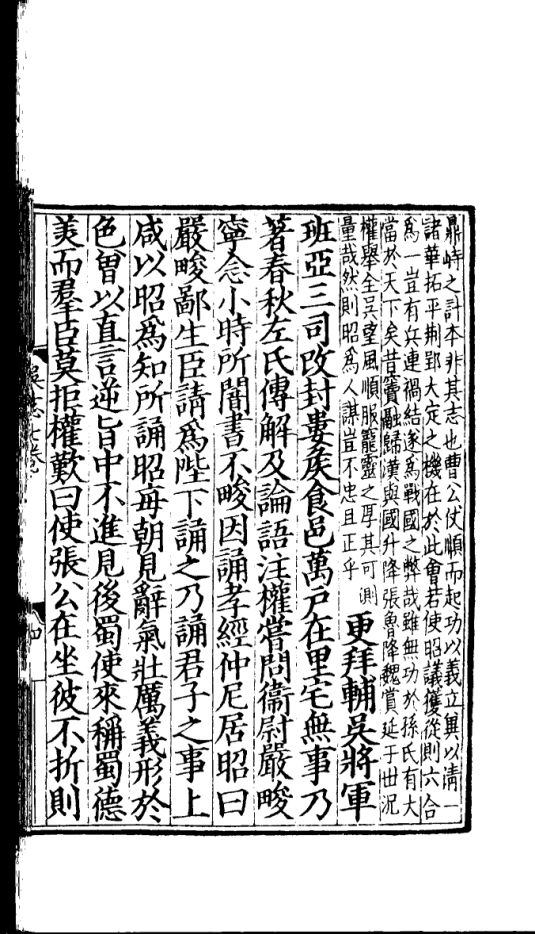 鼎峙之計本非其志也曹公仗順而起功以義立冀以清一
諸華拓平荆郢大定之機在於此會若使昭議獲從則六合
爲一豈有兵連禍結遂爲戰國之弊哉雖無功於孫氏有大
當於天下矣昔竇融歸漢與國升降張魯降魏賞延于世況
權舉全吳望風順服寵靈之厚其可測
量哉然則昭爲人謀豈不忠且正乎
更拜輔吳將軍
班亞三司改封婁矦食邑萬戸在里宅無事乃
著春秋左氏傳解及論語注權嘗問衞尉嚴畯
寧念小時所闇書不畯因誦孝經仲尼居昭曰
嚴畯鄙生臣請爲陛下誦之乃誦君子之事上
咸以昭爲知所誦昭每朝見辭氣壯厲義形於
色曾以直言逆旨中不進見後蜀使來稱蜀德
美而羣臣莫拒權歎曰使張公在坐彼不折則
吳志七卷
四